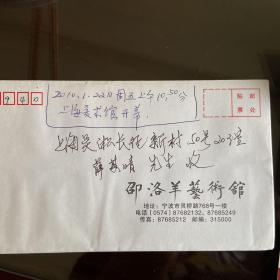 2010.1.22日周五上午10,50分
上海美术馆开幕
940
贴邮
票处
上海吴淞长征新村50号203室
薛 先生 收
邵洛羊藝術館
地址：宁波市灵桥路768号一楼
电话（0574）87682132、87685249
传真：87685212 邮编：315000